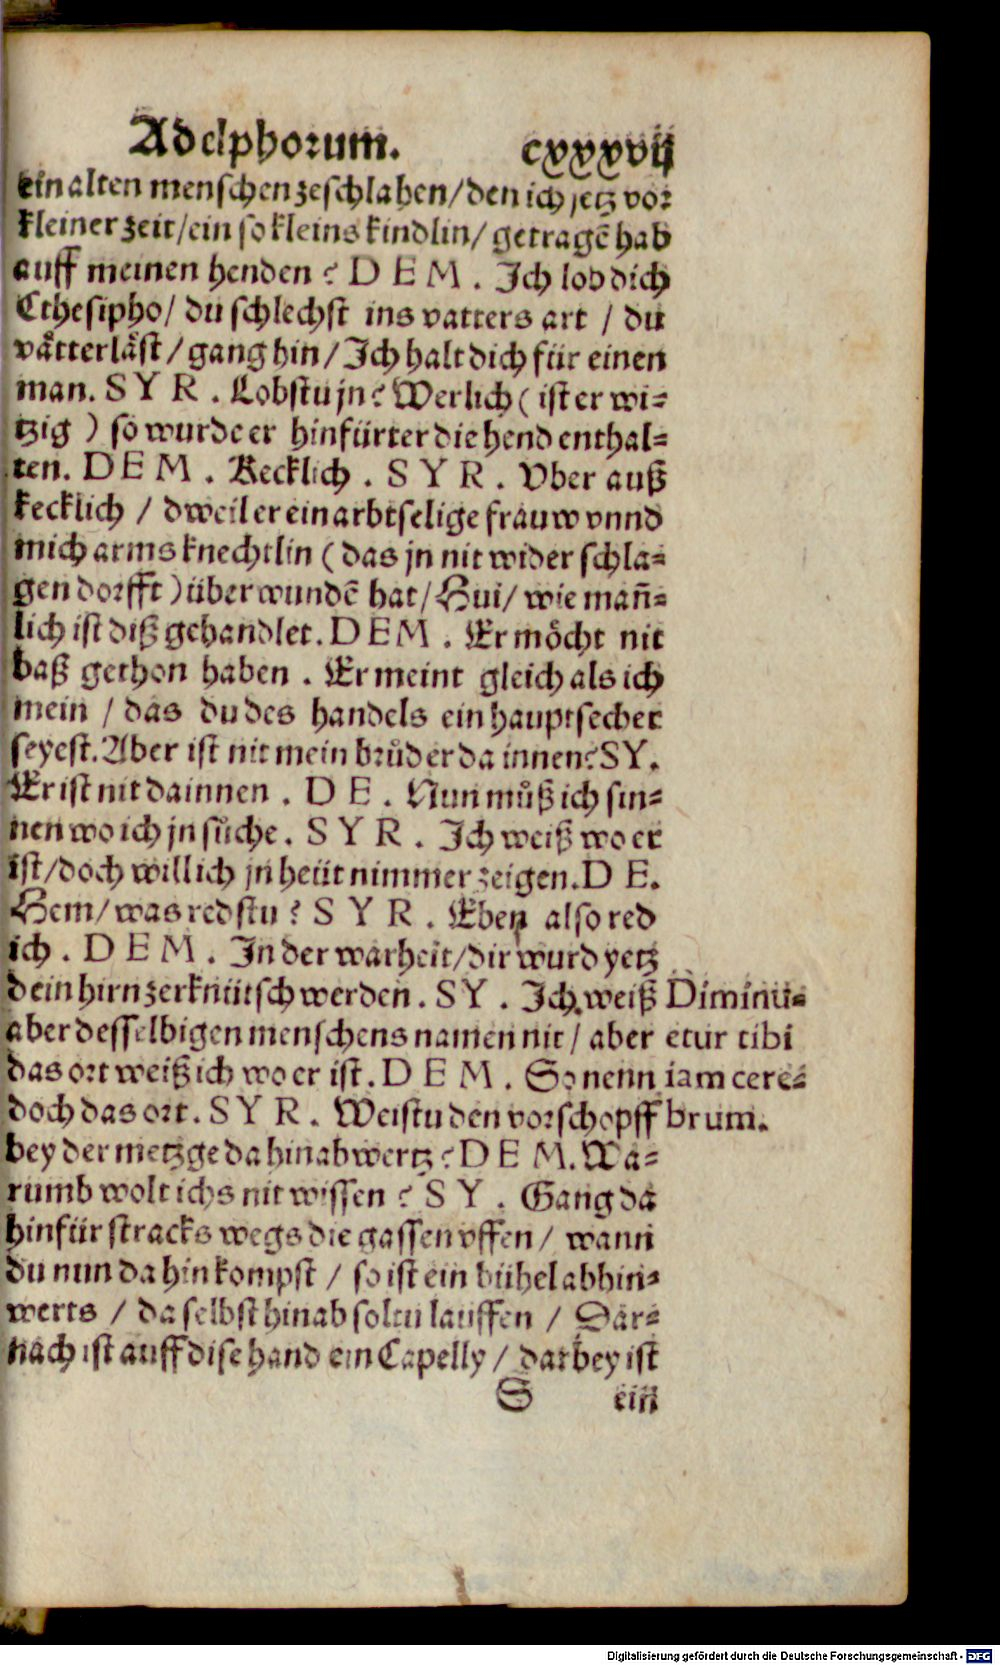 Adelphorum. cxxxvij
ein alten menschen zeschlahen/den ich jetz vor
kleiner zeit/ein so kleins kindlin/ getragē hab
auff meinen henden? DEM. Ich lob dich
Cthesipho/ du schlechst ins vatters art / du
våtterlåst/gang hin/Ich halt dich für einen
man. SYR. Lobstu jn? Werlich (ist er wi-
tzig) so wurde er hinfürter die hend enthal-
ten. DEM. Kecklich. SYR. Uber auß
kecklich / dweil er ein arbtselige frauw vnnd
mich arms knechtlin (das jn nit wider schla-
gen dorfft) überwundē hat/Hui/ wie mañ-
lich ist diß gehandlet. DEM. Er mo̊cht nit
baß gethon haben. Er meint gleich als ich
mein / das du des handels ein hauptsecher
seyest. Aber ist nit mein brůder da innen? SY.
Er ist nit dainnen. DE. Nun můß ich sin-
nen wo ich jn sůche. SYR. Ich weiß wo er
ist/doch will ich jn heüt nimmer zeigen. DE.
Hem/ was redstu? SYR. Eben also red
ich. DEM. In der warheit/dir wurd yetz
dein hirn zerknütsch werden. SY. Ich weiß
aber desselbigen menschens namen nit/ aber
das ort weiß ich wo er ist. DEM. So nenn
doch das ort. SYR. Weistu den vorschopff
bey der metzge da hinabwertz? DEM. Wa-
rumb wolt ichs nit wissen? SY. Gang da
hinfür stracks wegs die gassen vffen/ wann
du nun da hin kompst / so ist ein bühel abhin-
werts / da selbst hinab soltu lauffen / Dar-
nach ist auff dise hand ein Capelly/ darbey ist
S ein
Diminu-
etur tibi
iam cere-
brum.
Digitalisierung gefördert durch die Deutsche Forschungsgemeinschaft - DFG